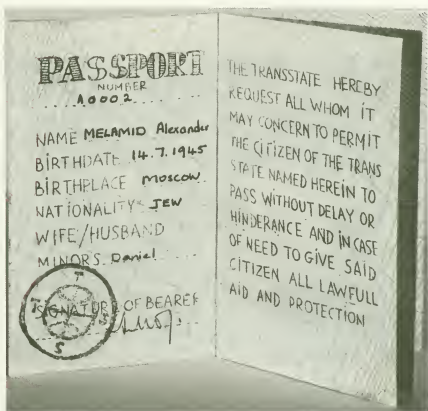 PASSPORT
NUMBER
A0002
NAME MELAMID Alexander
BIRTHDATE 14.7.1945
BIRTHPLACE Moscow
NATIONALITY JEW
WIFE/HUSBAND
MINOR'S Daniel
SIGNATURE OF BEARER
T
T S
S
THE TRANSSTATE HEREBY
REQUEST ALL WHOM IT
MAY CONCERN TO PERMIT
THE CITIZEN OF THE TRANS
STATE NAMED HEREIN TO
PASS WITHOUT DELAY OR
HINDERANCE AND IN CASE
OF NEED TO GIVE SAID
CITIZEN ALL LAWFULL
AID AND PROTECTION